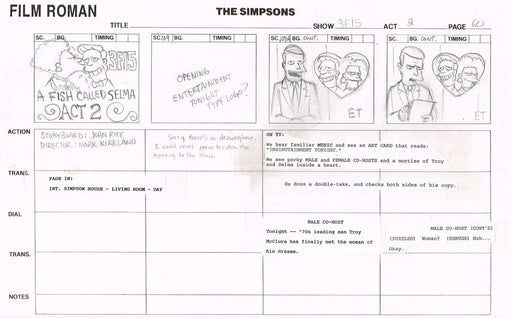 FILM ROMAN
THE SIMPSONS
TITLE
SHOW 3F15
ACT 2
PAGE 60
SC. BG. TIMING
SC. BG. TIMING
SC. BG. CONT. TIMING
SC. BG. CONT. TIMING
3F15
A FISH CALLED SELMA
ACT 2
OPENING
ENTERTAINMENT
TONIGHT
TYPE LOGO?
ET
ET
ACTION
STORYBOARD: JOHN RICE
DIRECTOR: MARK KIRKLAND
Sorry there's no drawing here,
I could never
opening to the show.
ON TV:
We hear familiar MUSIC and see an ART CARD that reads:
"INSINUTAINMENT TONIGHT."
We see perky MALE and FEMALE CO-HOSTS and a mortise of Troy
and Selma inside a heart.
TRANS.
FADE IN:
INT. SIMPSON HOUSE - LIVING ROOM - DAY
He does a double-take, and checks both sides of his copy.
DIAL
MALE CO-HOST
Tonight -- '70s leading man Troy
McClure has finally met the woman of
his dreams.
MALE CO-HOST (CONT'D)
(PUZZLED) Woman? (SHRUGS) Huh...
Okay.
TRANS.
NOTES